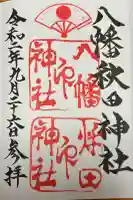 八幡秋田神社
八幡
神社
秋田
神社
令和二年九月二十六日参拝